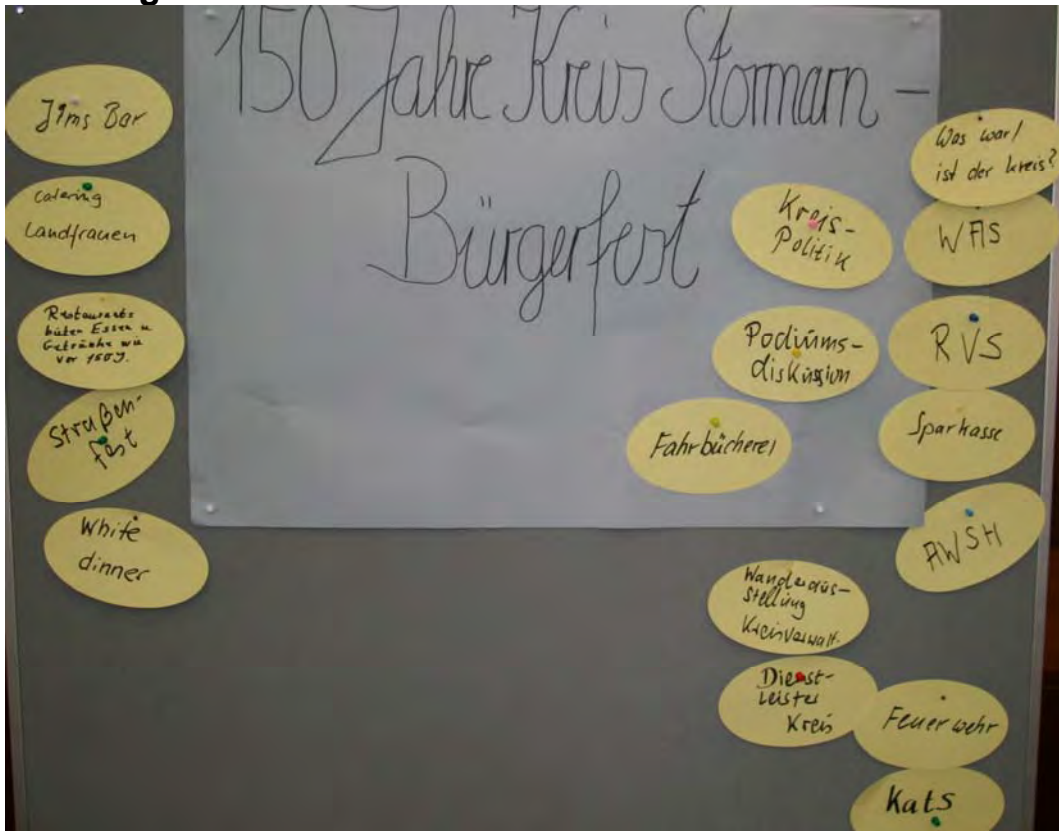 150 Jahre Kreis Stormarn -
Bürgerfest
Jims Bar
Catering
Landfrauen
Restaurants
bieten Essen u
Getränke wie
vor 150 J.
Straßen-
fest
White
dinner
Was war/
ist der Kreis?
Kreis-
Politik
WAS
Podiums-
diskussion
RVS
Fahrbücherei
Sparkasse
AWSH
Wanderaus-
stellung
Kreisverwalt.
Dienst-
Leister
Kreis
Feuerwehr
KatS